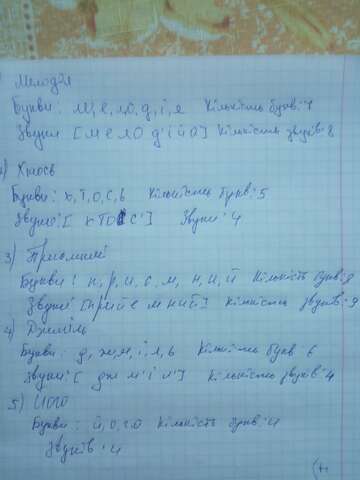 Мелодія
Букви: м, е, л, о, д, і, я Кількість букв: 7
Звуки [м е л о д' і й а] Кількість звуків: 8
Хтось
Букви: х, т, о, с, ь Кількість букв: 5
Звуки: [ х т о с' ] Звуки: 4
3) Приємний
Букви: п, р, и, є, м, н, и, й Кількість букв: 8
Звуки [п р и й е м н и й] Кількість звуків: 9
4) Джміль
Букви: д, ж, м, і, л, ь Кількість букв 6
Звуки: [ дж м' і л' ] Кількість звуків: 4
5) Його
Букви: й, о, г, о Кількість букв: 4
Звуків: 4